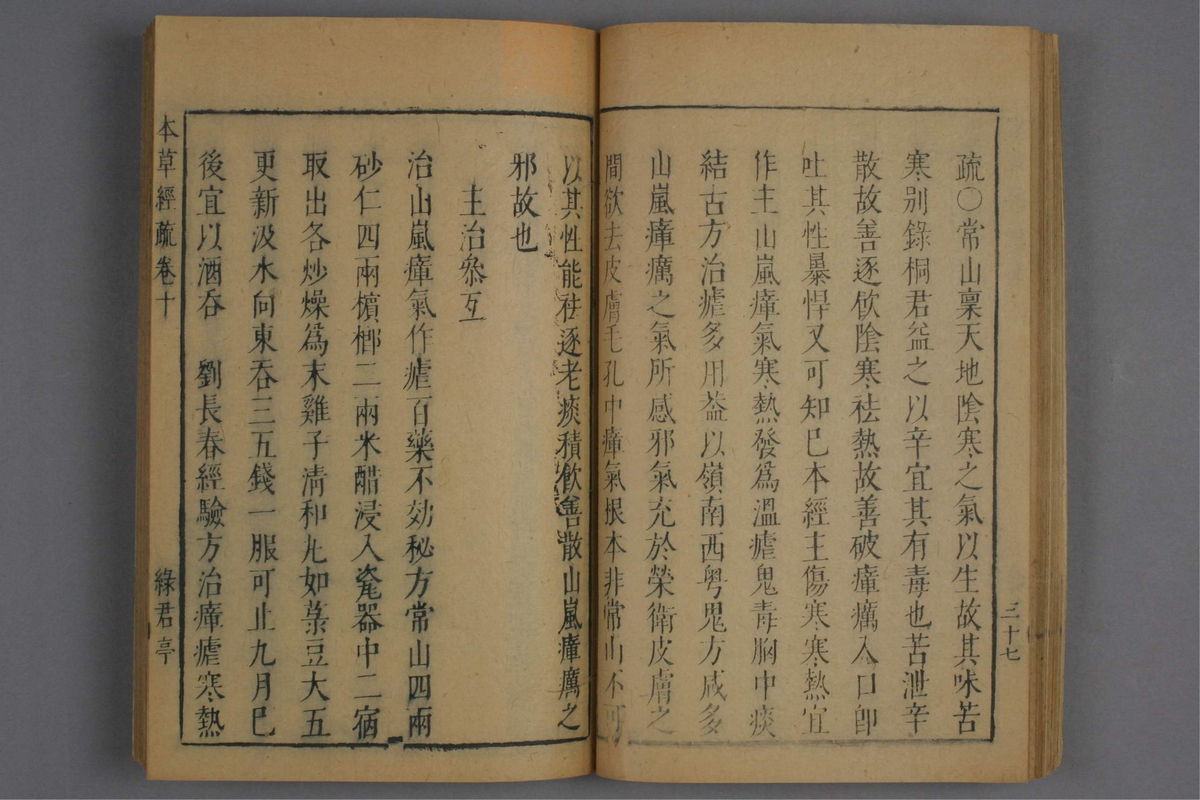 疏○常山稟天地陰寒之氣以生故其味苦
寒別錄桐君益之以辛宜其有毒也苦泄辛
散故善逐飲陰寒祛熱故善破瘴癘入口卽
吐其性暴悍又可知已本經主傷寒寒熱宜
作主山嵐瘴氣寒熱發爲溫瘧鬼毒胸中痰
結古方治瘧多用葢以嶺南西粤鬼方咸多
山嵐瘴癘之氣所感邪氣充於榮衛皮膚之
間欲去皮膚毛孔中瘴氣根本非常山不可
三十七
以其性能祛逐老痰積飲善散山嵐瘴癘之
邪故也
主治叅互
治山嵐瘴氣作瘧百藥不効秘方常山四兩
砂仁四兩檳榔二兩米醋浸入瓷器中二宿
取出各炒燥爲末雞子清和丸如菉豆大五
更新汲水向東吞三五錢一服可止九月已
後宜以酒吞 劉長春經驗方治瘴瘧寒熱
本草經疏 卷十 綠君亭